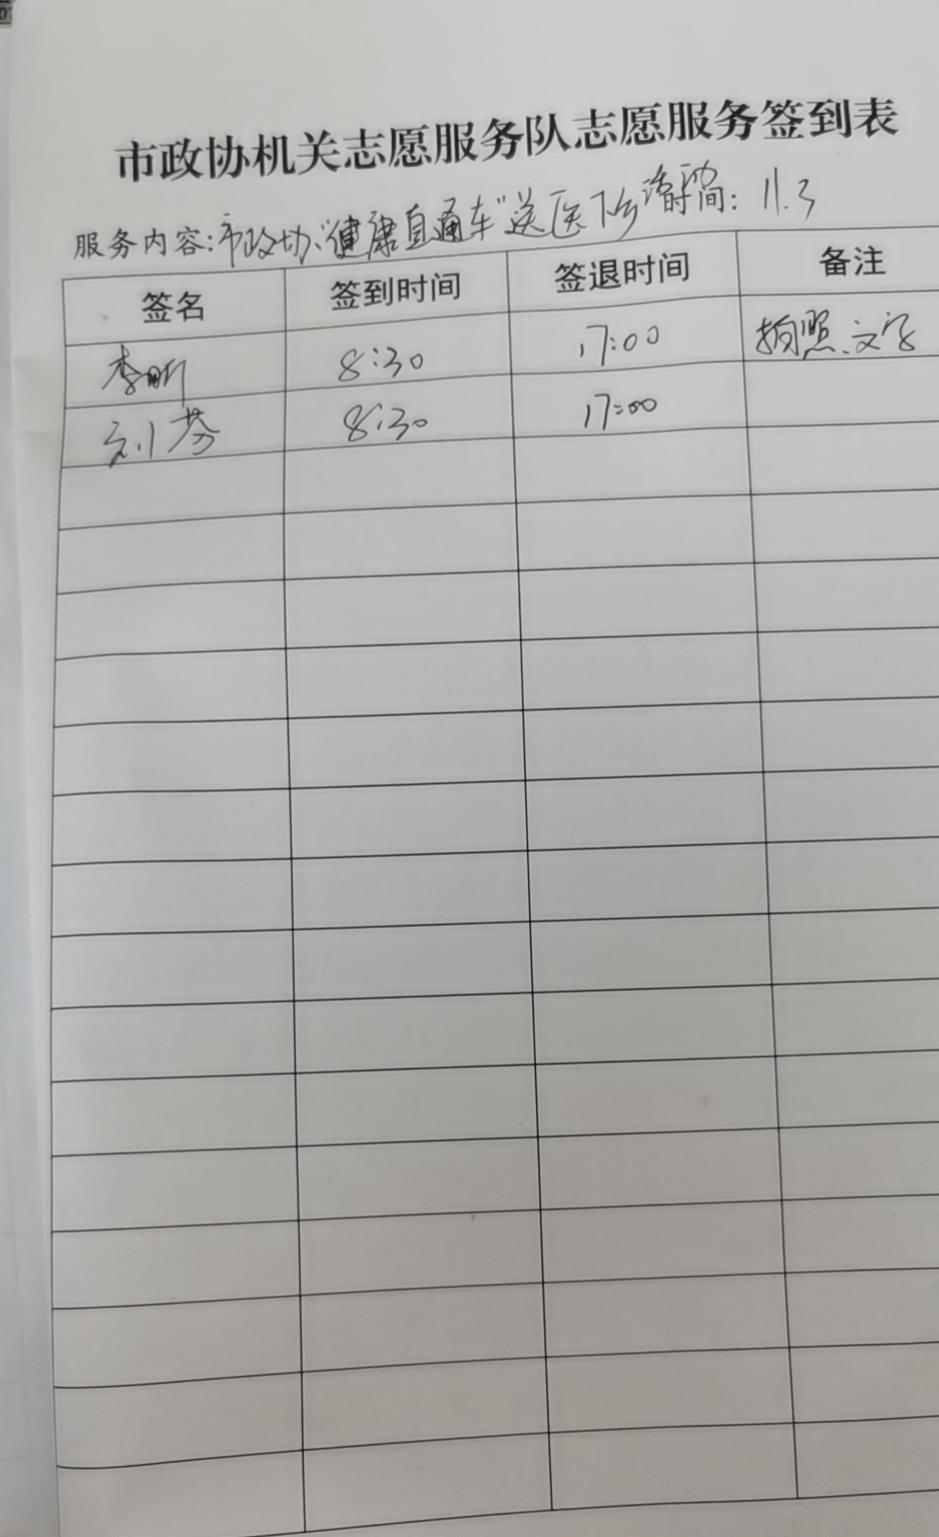 市政协机关志愿服务队志愿服务签到表
服务内容:市政协"健康直通车"送医下乡活动 时间: 11.3
签名 签到时间 签退时间 备注
李昕 8:30 17:00 拍照、文字
刘芬 8:30 17:00